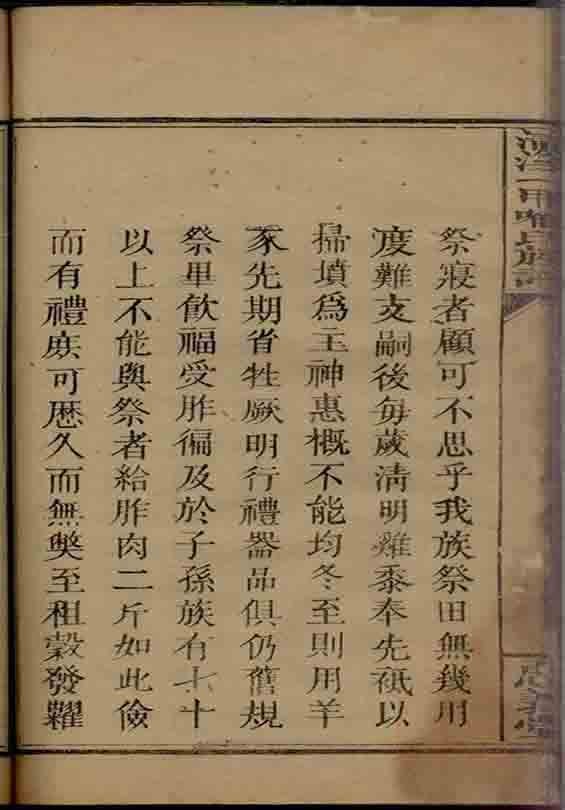 祭寢者顧可不思乎我族祭田無幾用
度難支嗣後每歲淸明雞黍奉先祗以
掃墳爲主神惠槪不能均冬至則用羊
豕先期省牲厥明行禮器品俱仍舊規
祭畢飮福受胙徧及於子孫族有七十
以上不能與祭者給胙肉二斤如此儉
而有禮庶可歷久而無獘至租穀發糶